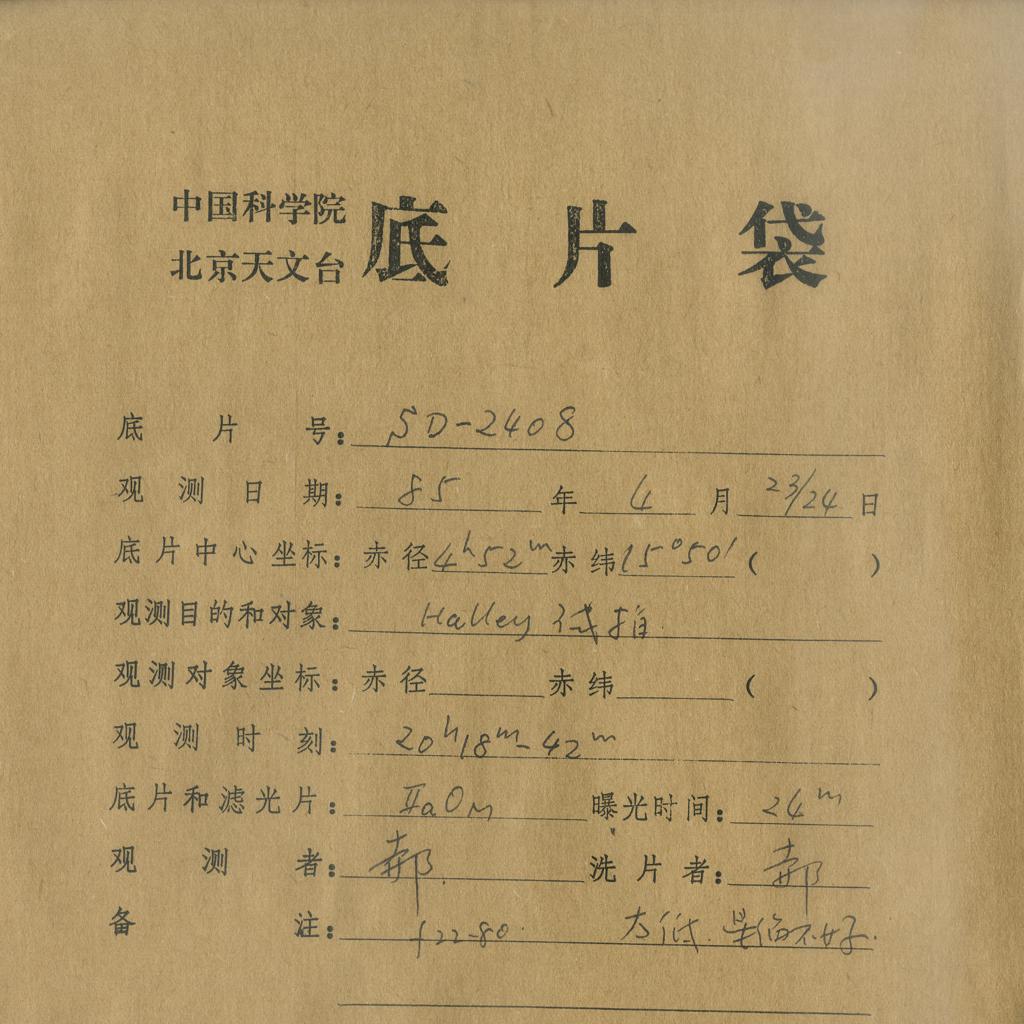 中国科学院
北京天文台
底片袋
底片号: SD-2408
观测日期: 85年4月23/24日
底片中心坐标: 赤径4h52m赤纬15°50'( )
观测目的和对象: Halley 试拍.
观测对象坐标: 赤径 赤纬 ( )
观测时刻: 20h18m-42m
底片和滤光片: IIaO 曝光时间: 24m
观测者: 郝. 洗片者: 郝
备注: 太低. 不好.